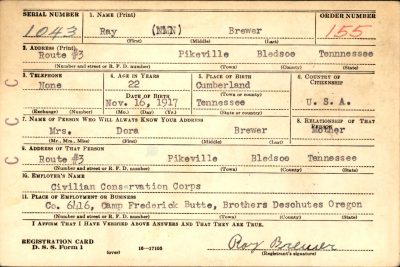 SERIAL NUMBER 1. NAME (Print) ORDER NUMBER
1043 Ray (NMN) Brewer 155
(First) (Middle) (Last)
2. ADDRESS (Print)
Route #3 Pikeville Bledsoe Tennnessee
(Number and street or R. F. D. number) (Town) (County) (State)
3. TELEPHONE 4. AGE IN YEARS 5. PLACE OF BIRTH 6. COUNTRY OF CITIZENSHIP
None 22 Cumberland
DATE OF BIRTH (Town or county)
Nov. 16, 1917 Tennessee U. S. A.
(Exchange) (Number) (Mo.) (Day) (Yr.) (State or country)
7. NAME OF PERSON WHO WILL ALWAYS KNOW YOUR ADDRESS 8. RELATIONSHIP OF THAT PERSON
Mrs. Dora Brewer Mother
(Mr., Mrs., Miss) (First) (Middle) (Last)
9. ADDRESS OF THAT PERSON
Route #3 Pikeville Bledsoe Tennessee
(Number and street or R. F. D. number) (Town) (County) (State)
10. EMPLOYER'S NAME
Civilian Conservation Corps
11. PLACE OF EMPLOYMENT OR BUSINESS
Camp Frederick Butte, Brothers Deschutes Oregon
(Number and street or R. F. D. number) (Town) (County) (State)
I AFFIRM THAT I HAVE VERIFIED ABOVE ANSWERS AND THAT THEY ARE TRUE.
REGISTRATION CARD
D. S. S. Form 1 (over) 16—17105 Ray Brewer
C C C